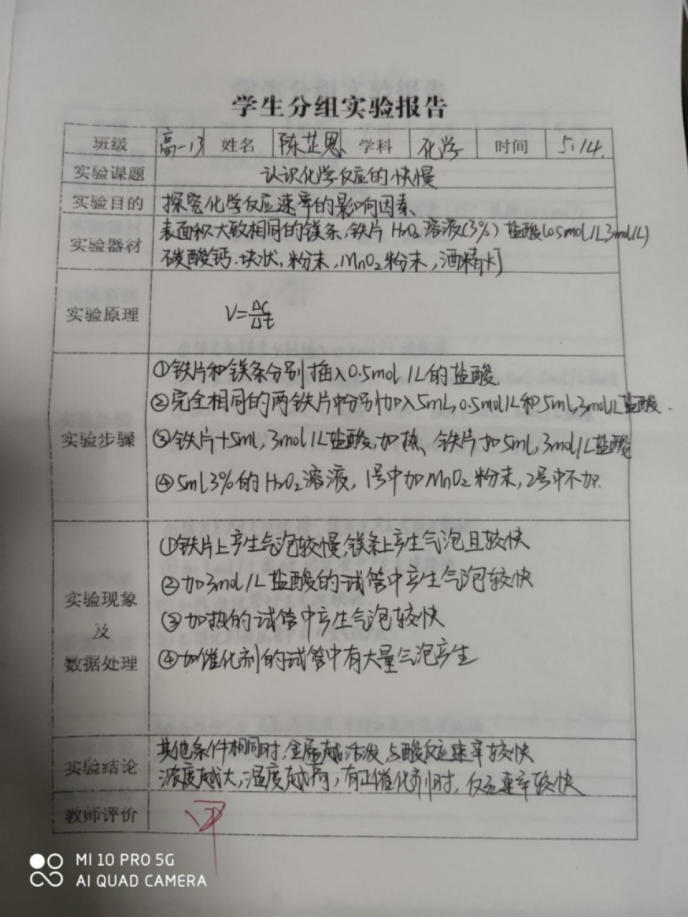 学生分组实验报告
班级 高一13 姓名 陈芷恩 学科 化学 时间 5.14.
实验课题 认识化学反应的快慢
实验目的 探究化学反应速率的影响因素
实验器材 表面积大致相同的镁条,铁片 H₂O₂溶液(3%) 盐酸(0.5mol/L,3mol/L)
碳酸钙.块状,粉末,MnO₂粉末,酒精灯
实验原理 V=Δc/Δt
实验步骤
①铁片和镁条分别插入0.5mol/L的盐酸
②完全相同的两铁片中分别加入5mL,0.5mol/L和5mL,3mol/L盐酸.
③铁片+5mL,3mol/L盐酸,加热、铁片加5mL,3mol/L盐酸
④5mL3%的H₂O₂溶液,1号中加MnO₂粉末,2号中不加.
实验现象及数据处理
①铁片上产生气泡较慢,镁条上产生气泡且较快
②加3mol/L盐酸的试管中产生气泡较快
③加热的试管中产生气泡较快
④加催化剂的试管中有大量气泡产生
实验结论 其他条件相同时,金属越活泼,与酸反应速率较快
浓度越大,温度越高,有正催化剂时,反应速率较快
教师评价
MI 10 PRO 5G
AI QUAD CAMERA